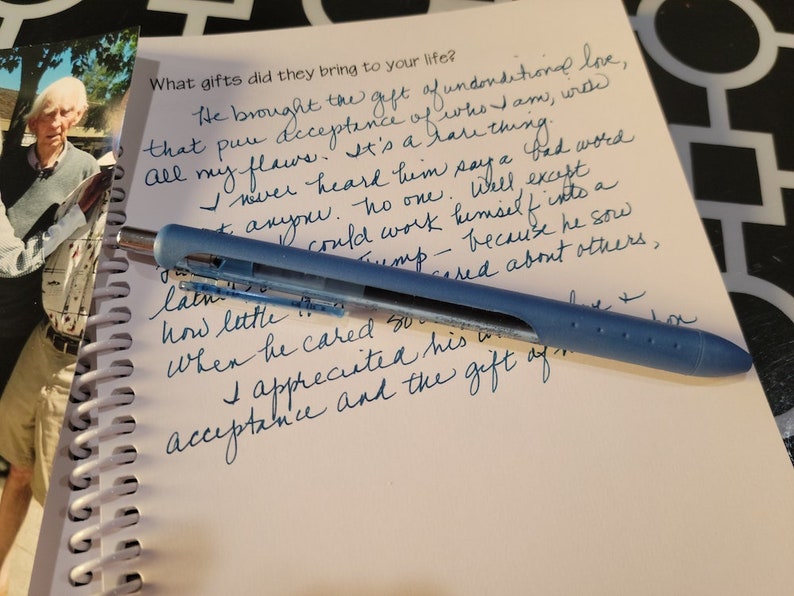 What gifts did they bring to your life?
He brought the gift of unconditional love,
that pure acceptance of who I am, wrote
all my flaws. It's a rare thing.
I never heard him say a bad word
anyone. No one. Well except
could work himself into a
Trump – because he saw
cared about others,
how little
when he cared so love +
I appreciated his
acceptance and the gift of